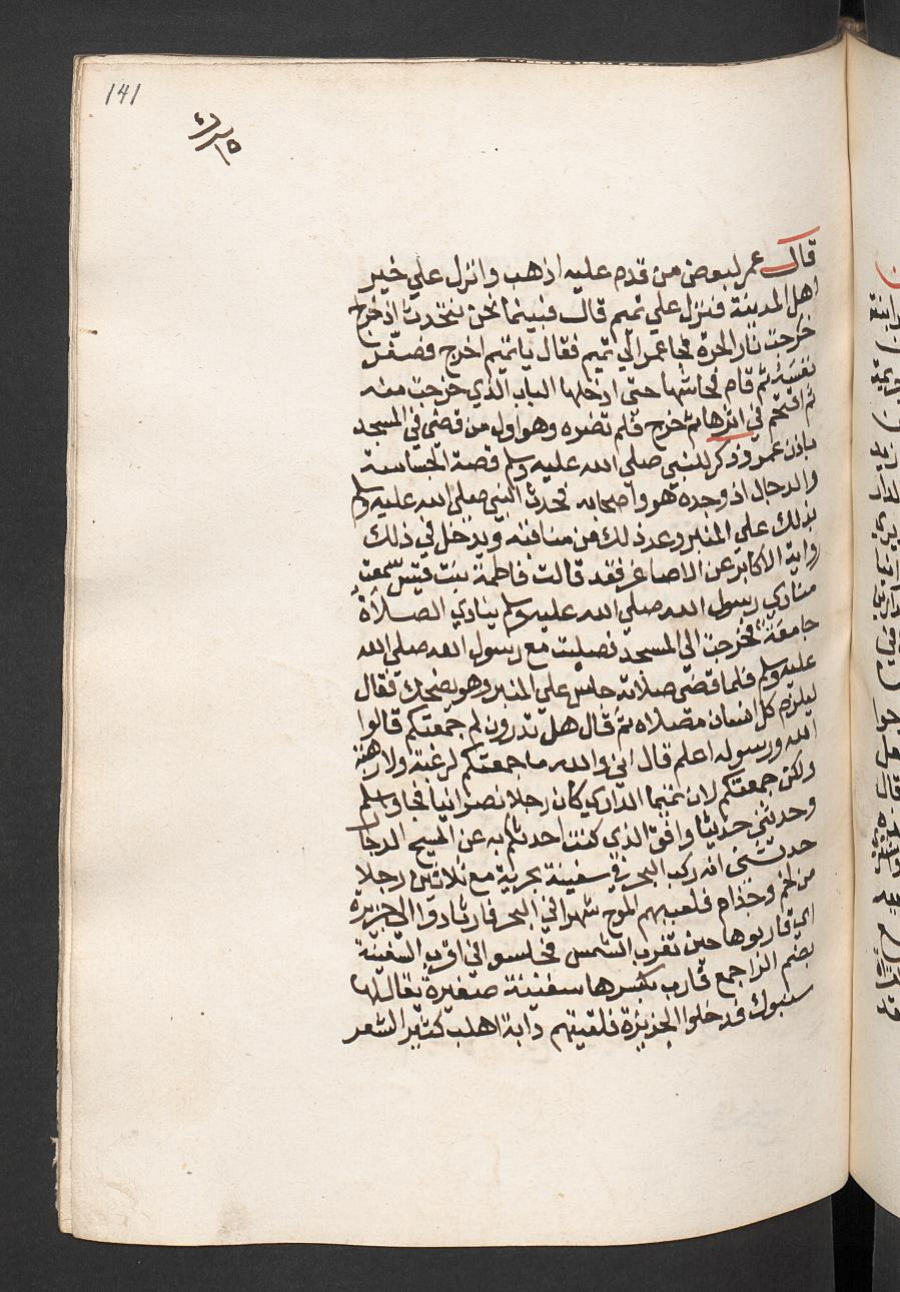 141
قال عمر لبعض من قدم عليه اذهب وانزل علي خير
اهل المدينة فنزل علي تميم قال فبينما نحن نتحدث اذ خرج
خرجت نار الحرة فجا عمر الي تميم فقال يا تميم اخرج فصغر
نفسه ثم قام فحاشها حتى ادخلها الباب الذي خرجت منه
ثم اقتحم في اثرها ثم خرج فلم تضره وهو اول من قص في المسجد
باذن عمر وذكر للنبي صلى الله عليه وسلم قصة الجساسة
والدجال اذ وجده هو واصحابه فحدث النبي صلى الله عليه وسلم
بذلك علي المنبر وعد ذلك من مناقبه ويدخل في ذلك
رواية الاكابر عن الاصاغر فقد قالت فاطمة بنت قيس سمعت
منادي رسول الله صلى الله عليه وسلم ينادي الصلاة
جامعة فخرجت الي المسجد فصليت مع رسول الله صلى الله
عليه وسلم فلما قضى صلاته جلس على المنبر وهو يضحك فقال
ليلزم كل انسان مصلاه ثم قال هل تدرون لم جمعتكم قالوا
الله ورسوله اعلم قال اني والله ما جمعتكم لرغبة ولا رهبة
ولكن جمعتكم لان تميما الداري كان رجلا نصرانيا فجا واسلم
وحدثني حديثا وافق الذي كنت احدثكم به عن المسيح الدجال
حدثني انه ركب البحر في سفينة بحرية مع ثلاثين رجلا
من لخم وجذام فلعب بهم الموج شهرا في البحر فارفادوا الى جزيرة
اي قاربوها حين تغرب الشمس فجلسوا في اقرب السفينة
بضم الرا جمع قارب بكسرها سفينة صغيرة يقال لها
سنبوك فدخلوا الجزيرة فلقيتهم دابة اهلب كثير الشعر